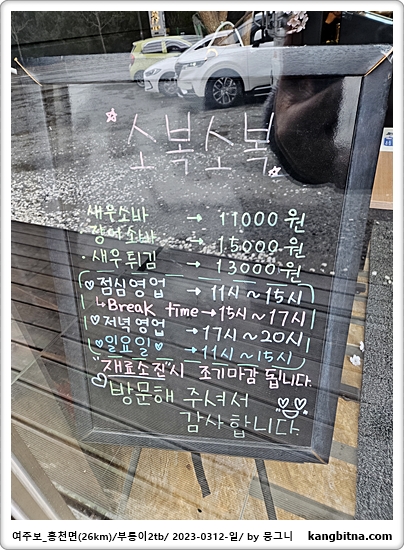 소복소복
새우소바 → 11000원
장어소바 → 15000원
·새우튀김 → 13000원
♡점심영업 → 11시~15시
↳Break time→15시~17시
♡저녁영업 → 17시~20시
♡일요일♡ → 11시~15시
"재료소진"시 조기마감 됩니다.
♡방문해 주셔서
감사합니다.
여주보_흥천면(26km)/부릉이2tb/ 2023-0312-일/ by 뭉그니 kangbitna.com